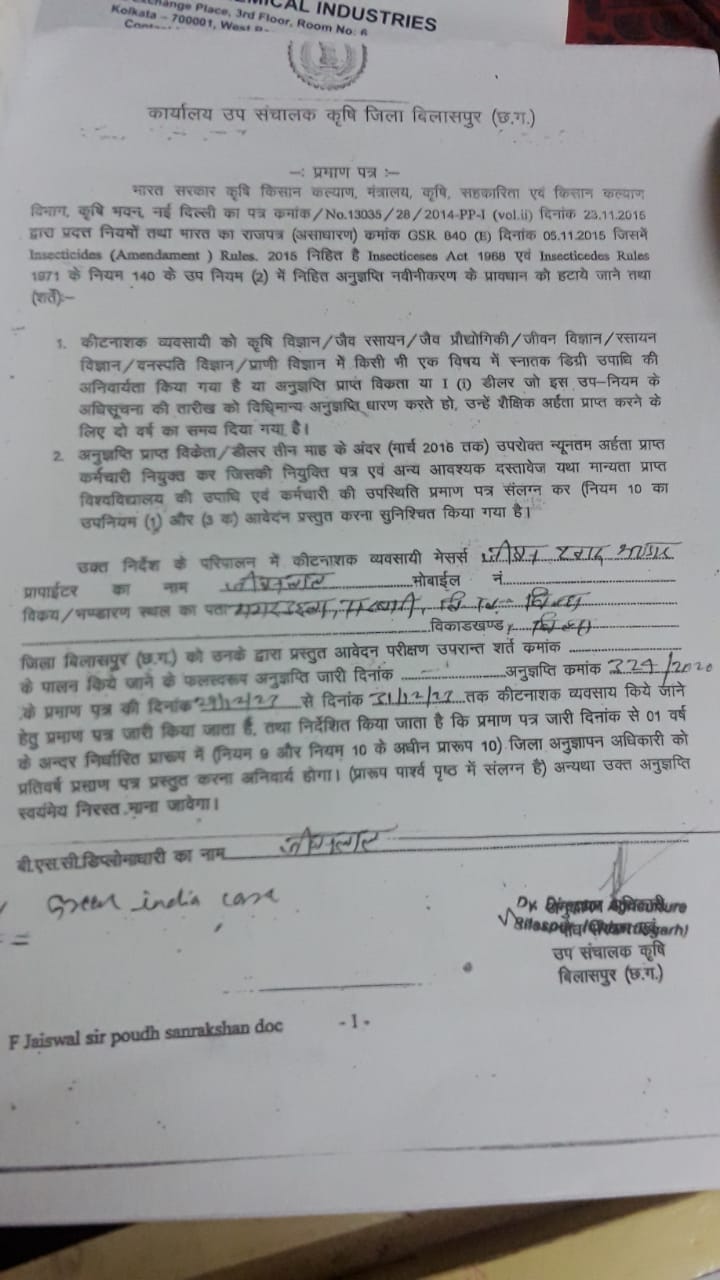 CAL INDUSTRIES
change Place, 3rd Floor, Room No: 6
Kolkata – 700001, West
कार्यालय उप संचालक कृषि जिला बिलासपुर (छ.ग.)
—: प्रमाण पत्र :–
भारत सरकार कृषि किसान कल्याण, मंत्रालय, कृषि, सहकारिता एवं किसान कल्याण
विभाग, कृषि भवन, नई दिल्ली का पत्र कमांक/No.13035/28/2014-PP-I (vol.ii) दिनांक 23.11.2015
द्वारा प्रदत्त नियमों तथा भारत का राजपत्र (असाधारण) कमांक GSR 840 (E) दिनांक 05.11.2015 जिसमें
Insecticides (Amendament ) Rules, 2015 निहित है Insecticeses Act 1968 एवं Insecticedes Rules
1971 के नियम 140 के उप नियम (2) में निहित अनुज्ञप्ति नवीनीकरण के प्रावधान को हटाये जाने तथा
(शर्ते):–
1. कीटनाशक व्यवसायी को कृषि विज्ञान/जैव रसायन/जैव प्रौद्योगिकी/जीवन विज्ञान/रसायन
विज्ञान/वनस्पति विज्ञान/प्राणी विज्ञान में किसी भी एक विषय में स्नातक डिग्री उपाधि की
अनिवार्यता किया गया है या अनुज्ञप्ति प्राप्त विकता या I (i) डीलर जो इस उप–नियम के
अधिसूचना की तारीख को विधिमान्य अनुज्ञप्ति धारण करते हो, उन्हें शैक्षिक अर्हता प्राप्त करने के
लिए दो वर्ष का समय दिया गया है।
2. अनुज्ञप्ति प्राप्त विकेता/डीलर तीन माह के अंदर (मार्च 2016 तक) उपरोक्त न्यूनतम अर्हता प्राप्त
कर्मचारी नियुक्त कर जिसकी नियुक्ति पत्र एवं अन्य आवश्यक दस्तावेज यथा मान्यता प्राप्त
विश्वविद्यालय की उपाधि एवं कर्मचारी की उपस्थिति प्रमाण पत्र संलग्न कर (नियम 10 का
उपनियम (1) और (3 क) आवेदन प्रस्तुत करना सुनिश्चित किया गया है।
उक्त निर्देश के परिपालन में कीटनाशक व्यवसायी मेसर्स
प्रापाईटर का नाम मोबाईल नं.
विकय/भण्डारण स्थल का पता
विकाडखण्ड
जिला बिलासपुर (छ.ग.) को उनके द्वारा प्रस्तुत आवेदन परीक्षण उपरान्त शर्ते कमांक
के पालन किये जाने के फलस्वरूप अनुज्ञप्ति जारी दिनांक अनुज्ञप्ति कमांक 324/2020
के प्रमाण पत्र की दिनांक से दिनांक 31/12/27 तक कीटनाशक व्यवसाय किये जाने
हेतु प्रमाण पत्र जारी किया जाता है, तथा निर्देशित किया जाता है कि प्रमाण पत्र जारी दिनांक से 01 वर्ष
के अन्दर निर्धारित प्रारूप में (नियम 9 और नियम 10 के अधीन प्रारूप 10) जिला अनुज्ञापन अधिकारी को
प्रतिवर्ष प्रमाण पत्र प्रस्तुत करना अनिवार्य होगा। (प्रारूप पार्श्व पृष्ठ में संलग्न है) अन्यथा उक्त अनुज्ञप्ति
स्वयंमेय निरस्त माना जावेगा।
बी.एस.सी.डिप्लोमाधारी का नाम
Green india care
उप संचालक कृषि
बिलासपुर (छ.ग.)
F Jaiswal sir poudh sanrakshan doc - 1 -